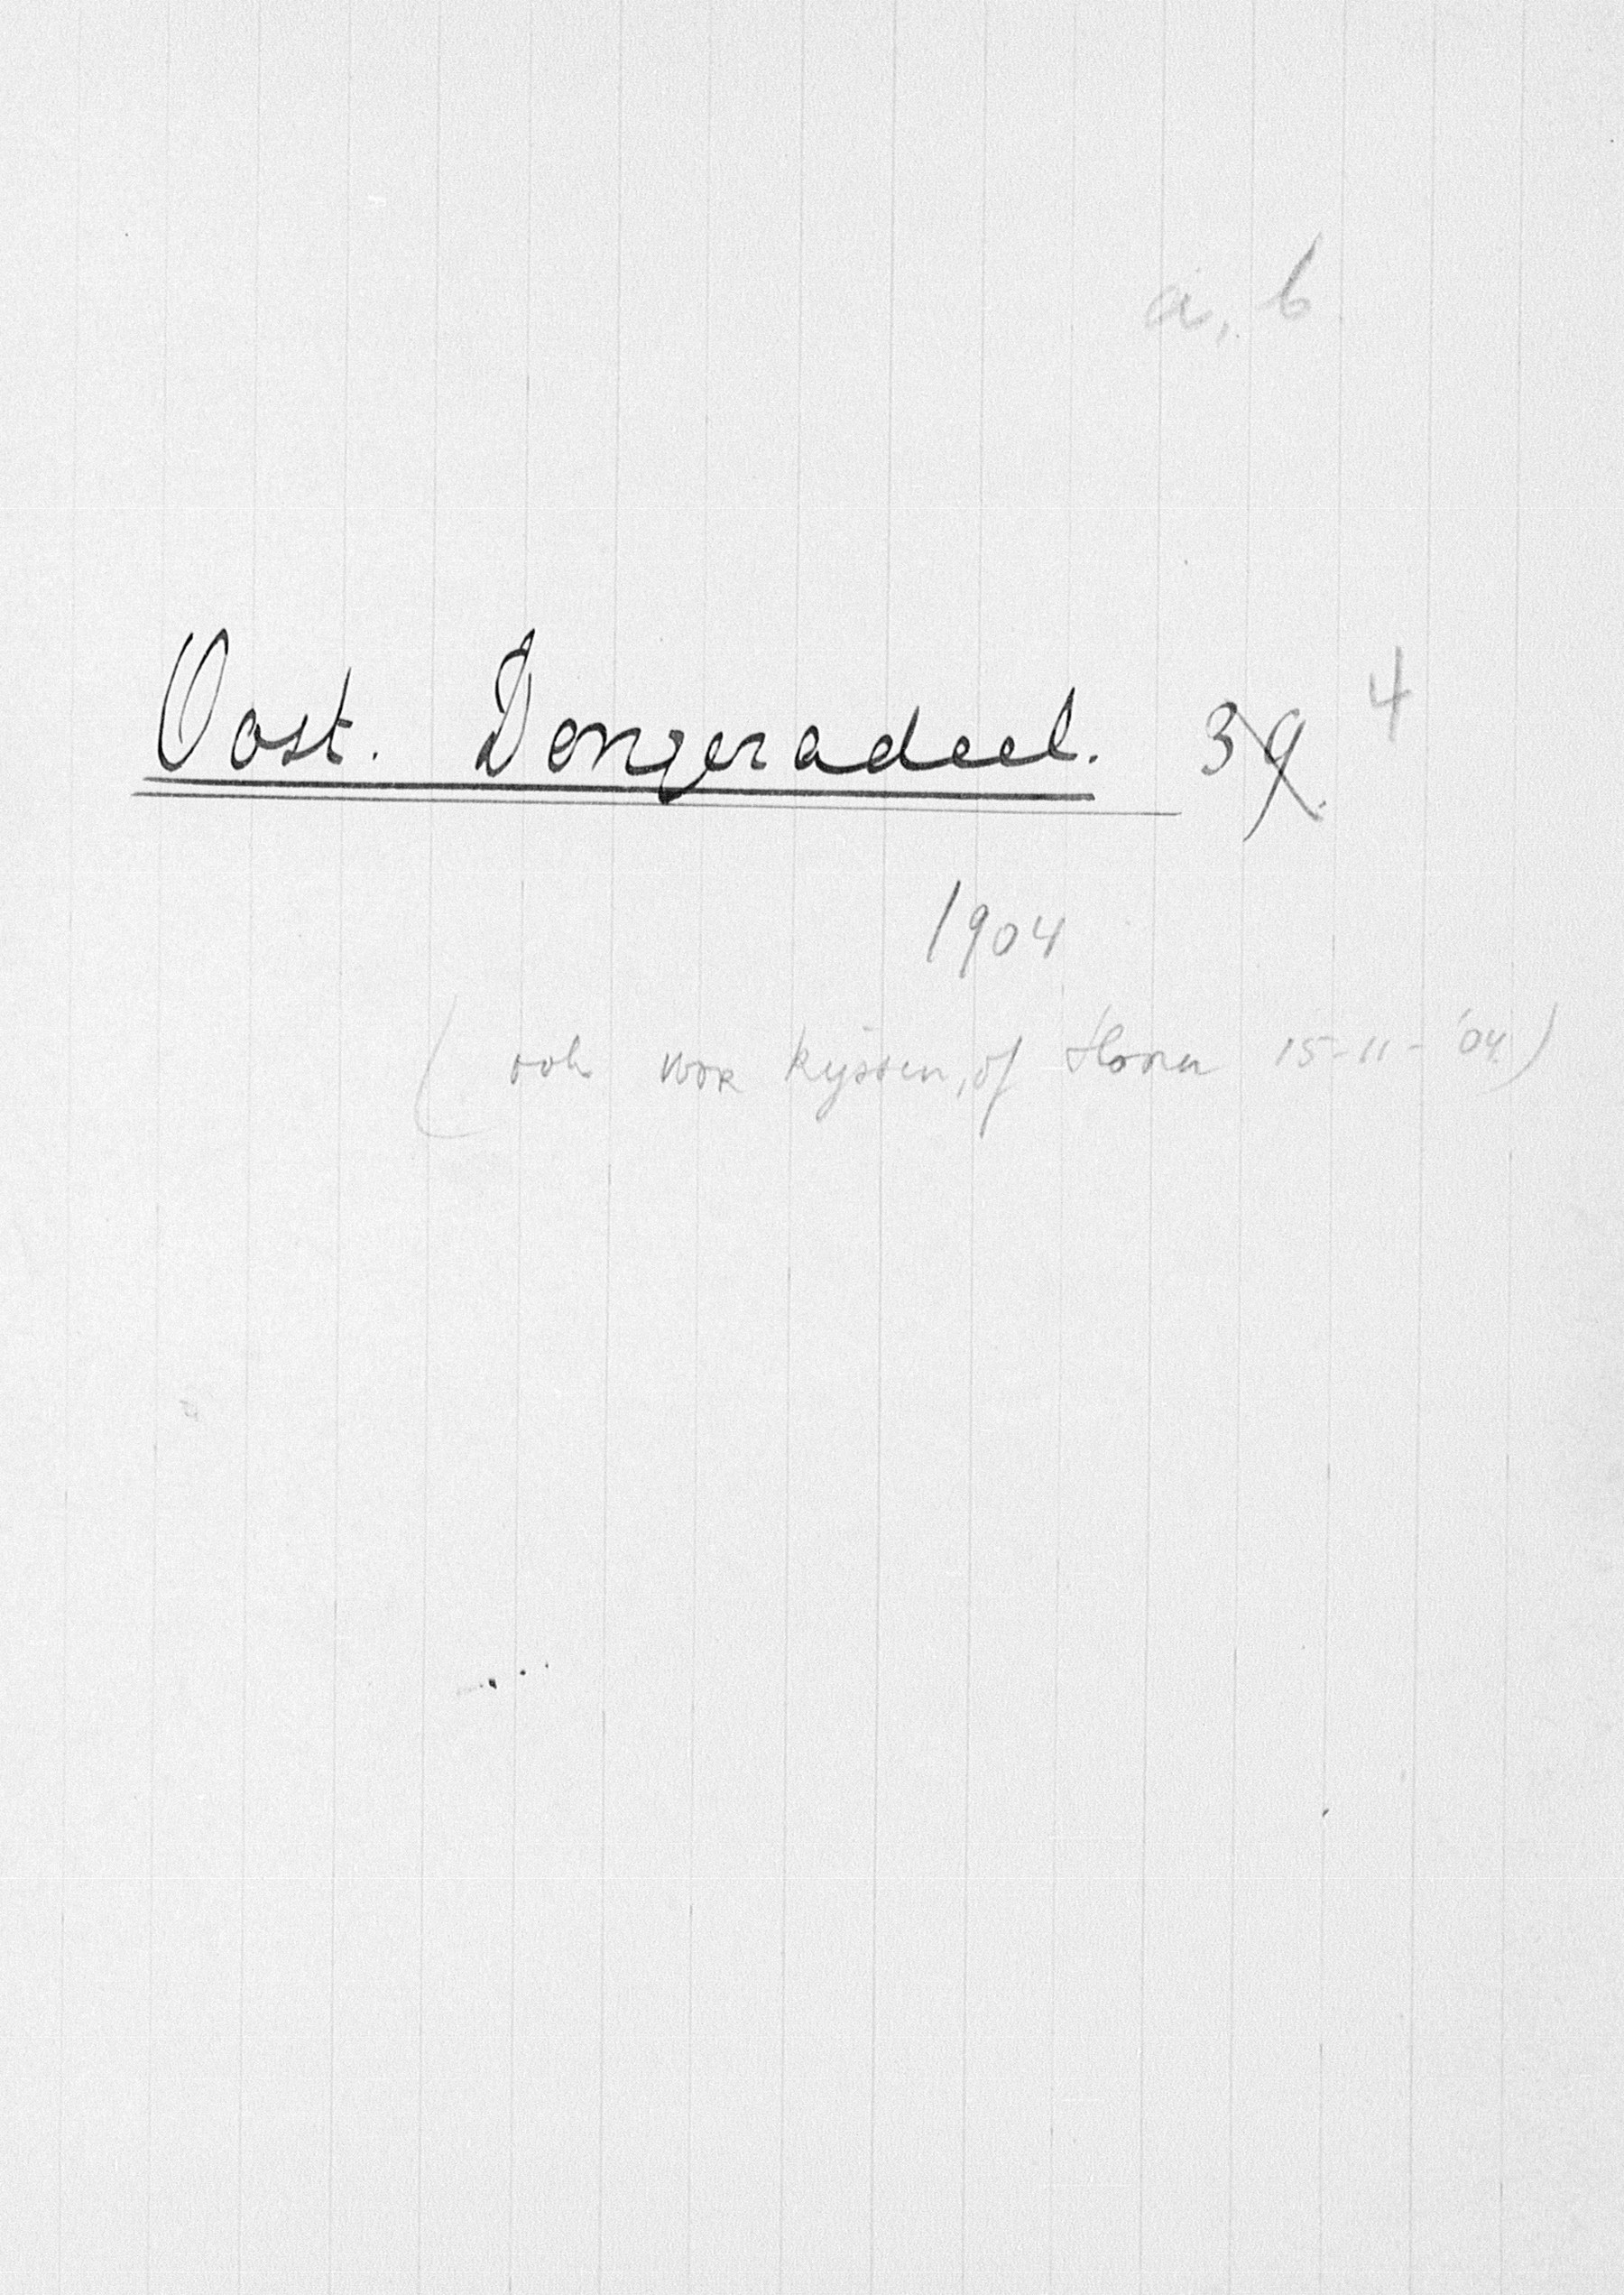 a, b
Oost. Dongeradeel. 39. 4
1904
( ook voor Rijssen, of 15-11-'04)